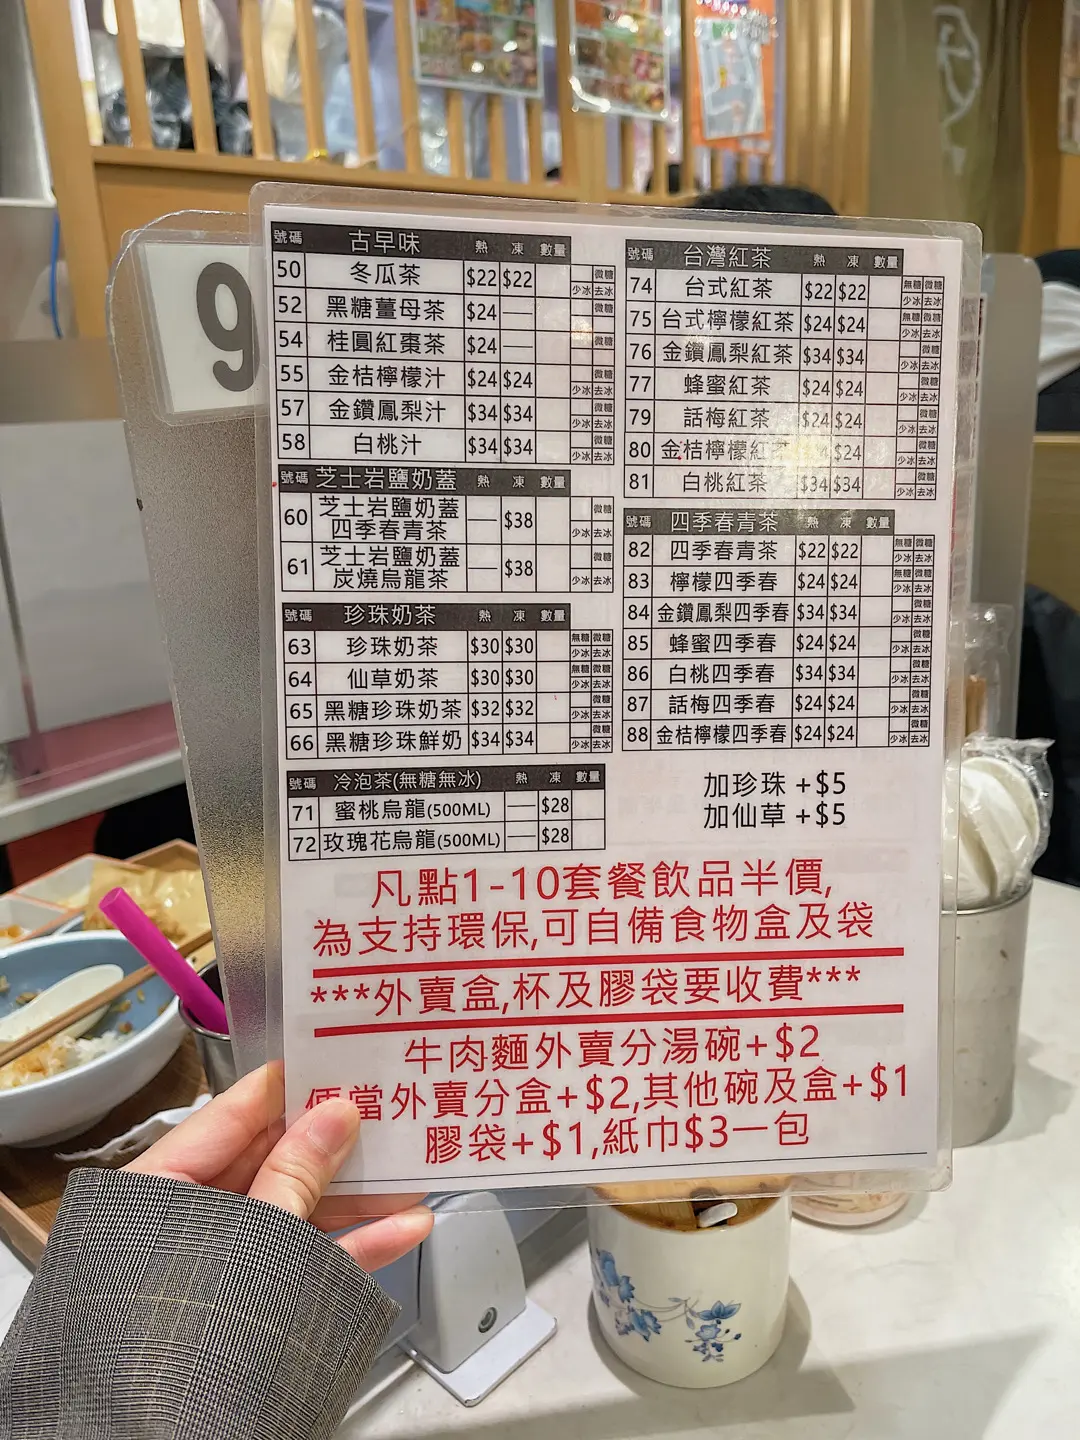 9
號碼 古早味 熱 凍 數量
50 冬瓜茶 $22 $22 微糖 少冰 去冰
52 黑糖薑母茶 $24 — 微糖
54 桂圓紅棗茶 $24 — 微糖
55 金桔檸檬汁 $24 $24 微糖 少冰 去冰
57 金鑽鳳梨汁 $34 $34 微糖 少冰 去冰
58 白桃汁 $34 $34 微糖 少冰 去冰
號碼 芝士岩鹽奶蓋 熱 凍 數量
60 芝士岩鹽奶蓋
四季春青茶 — $38 微糖 少冰 去冰
61 芝士岩鹽奶蓋
炭燒烏龍茶 — $38 微糖 少冰 去冰
號碼 珍珠奶茶 熱 凍 數量
63 珍珠奶茶 $30 $30 無糖 微糖 少冰 去冰
64 仙草奶茶 $30 $30 無糖 微糖 少冰 去冰
65 黑糖珍珠奶茶 $32 $32 微糖 少冰 去冰
66 黑糖珍珠鮮奶 $34 $34 微糖 少冰 去冰
號碼 冷泡茶(無糖無冰) 熱 凍 數量
71 蜜桃烏龍(500ML) — $28
72 玫瑰花烏龍(500ML) — $28
號碼 台灣紅茶 熱 凍 數量
74 台式紅茶 $22 $22 無糖 微糖 少冰 去冰
75 台式檸檬紅茶 $24 $24 無糖 微糖 少冰 去冰
76 金鑽鳳梨紅茶 $34 $34 微糖 少冰 去冰
77 蜂蜜紅茶 $24 $24 微糖 少冰 去冰
79 話梅紅茶 $24 $24 微糖 少冰 去冰
80 金桔檸檬紅茶 $24 微糖 少冰 去冰
81 白桃紅茶 $34 $34 微糖 少冰 去冰
號碼 四季春青茶 熱 凍 數量
82 四季春青茶 $22 $22 無糖 微糖 少冰 去冰
83 檸檬四季春 $24 $24 無糖 微糖 少冰 去冰
84 金鑽鳳梨四季春 $34 $34 微糖 少冰 去冰
85 蜂蜜四季春 $24 $24 微糖 少冰 去冰
86 白桃四季春 $34 $34 微糖 少冰 去冰
87 話梅四季春 $24 $24 微糖 少冰 去冰
88 金桔檸檬四季春 $24 $24 微糖 少冰 去冰
加珍珠 +$5
加仙草 +$5
凡點1-10套餐飲品半價,
為支持環保,可自備食物盒及袋
***外賣盒,杯及膠袋要收費***
牛肉麵外賣分湯碗+$2
便當外賣分盒+$2,其他碗及盒+$1
膠袋+$1,紙巾$3一包